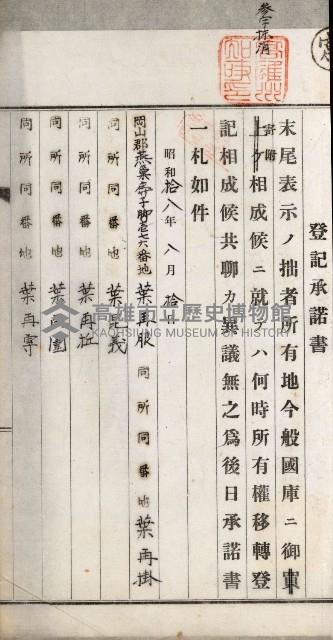 參字抹消
登記承諾書
末尾表示ノ拙者所有地今般國庫ニ御
寄附
上ケ相成候ニ就テハ何時所有權移轉登
記相成候共聊カ異議無之爲後日承諾書
一札如件
昭和拾八年八月拾日
岡山郡燕巢庄子脚壱六番地 葉再服 同所同番地 葉再掛
同所同番地 葉是義
同所同番地 葉再
同所同番地 葉
同所同番地 葉再專
高雄市立歷史博物館
KAOHSIUNG MUSEUM OF HISTORY